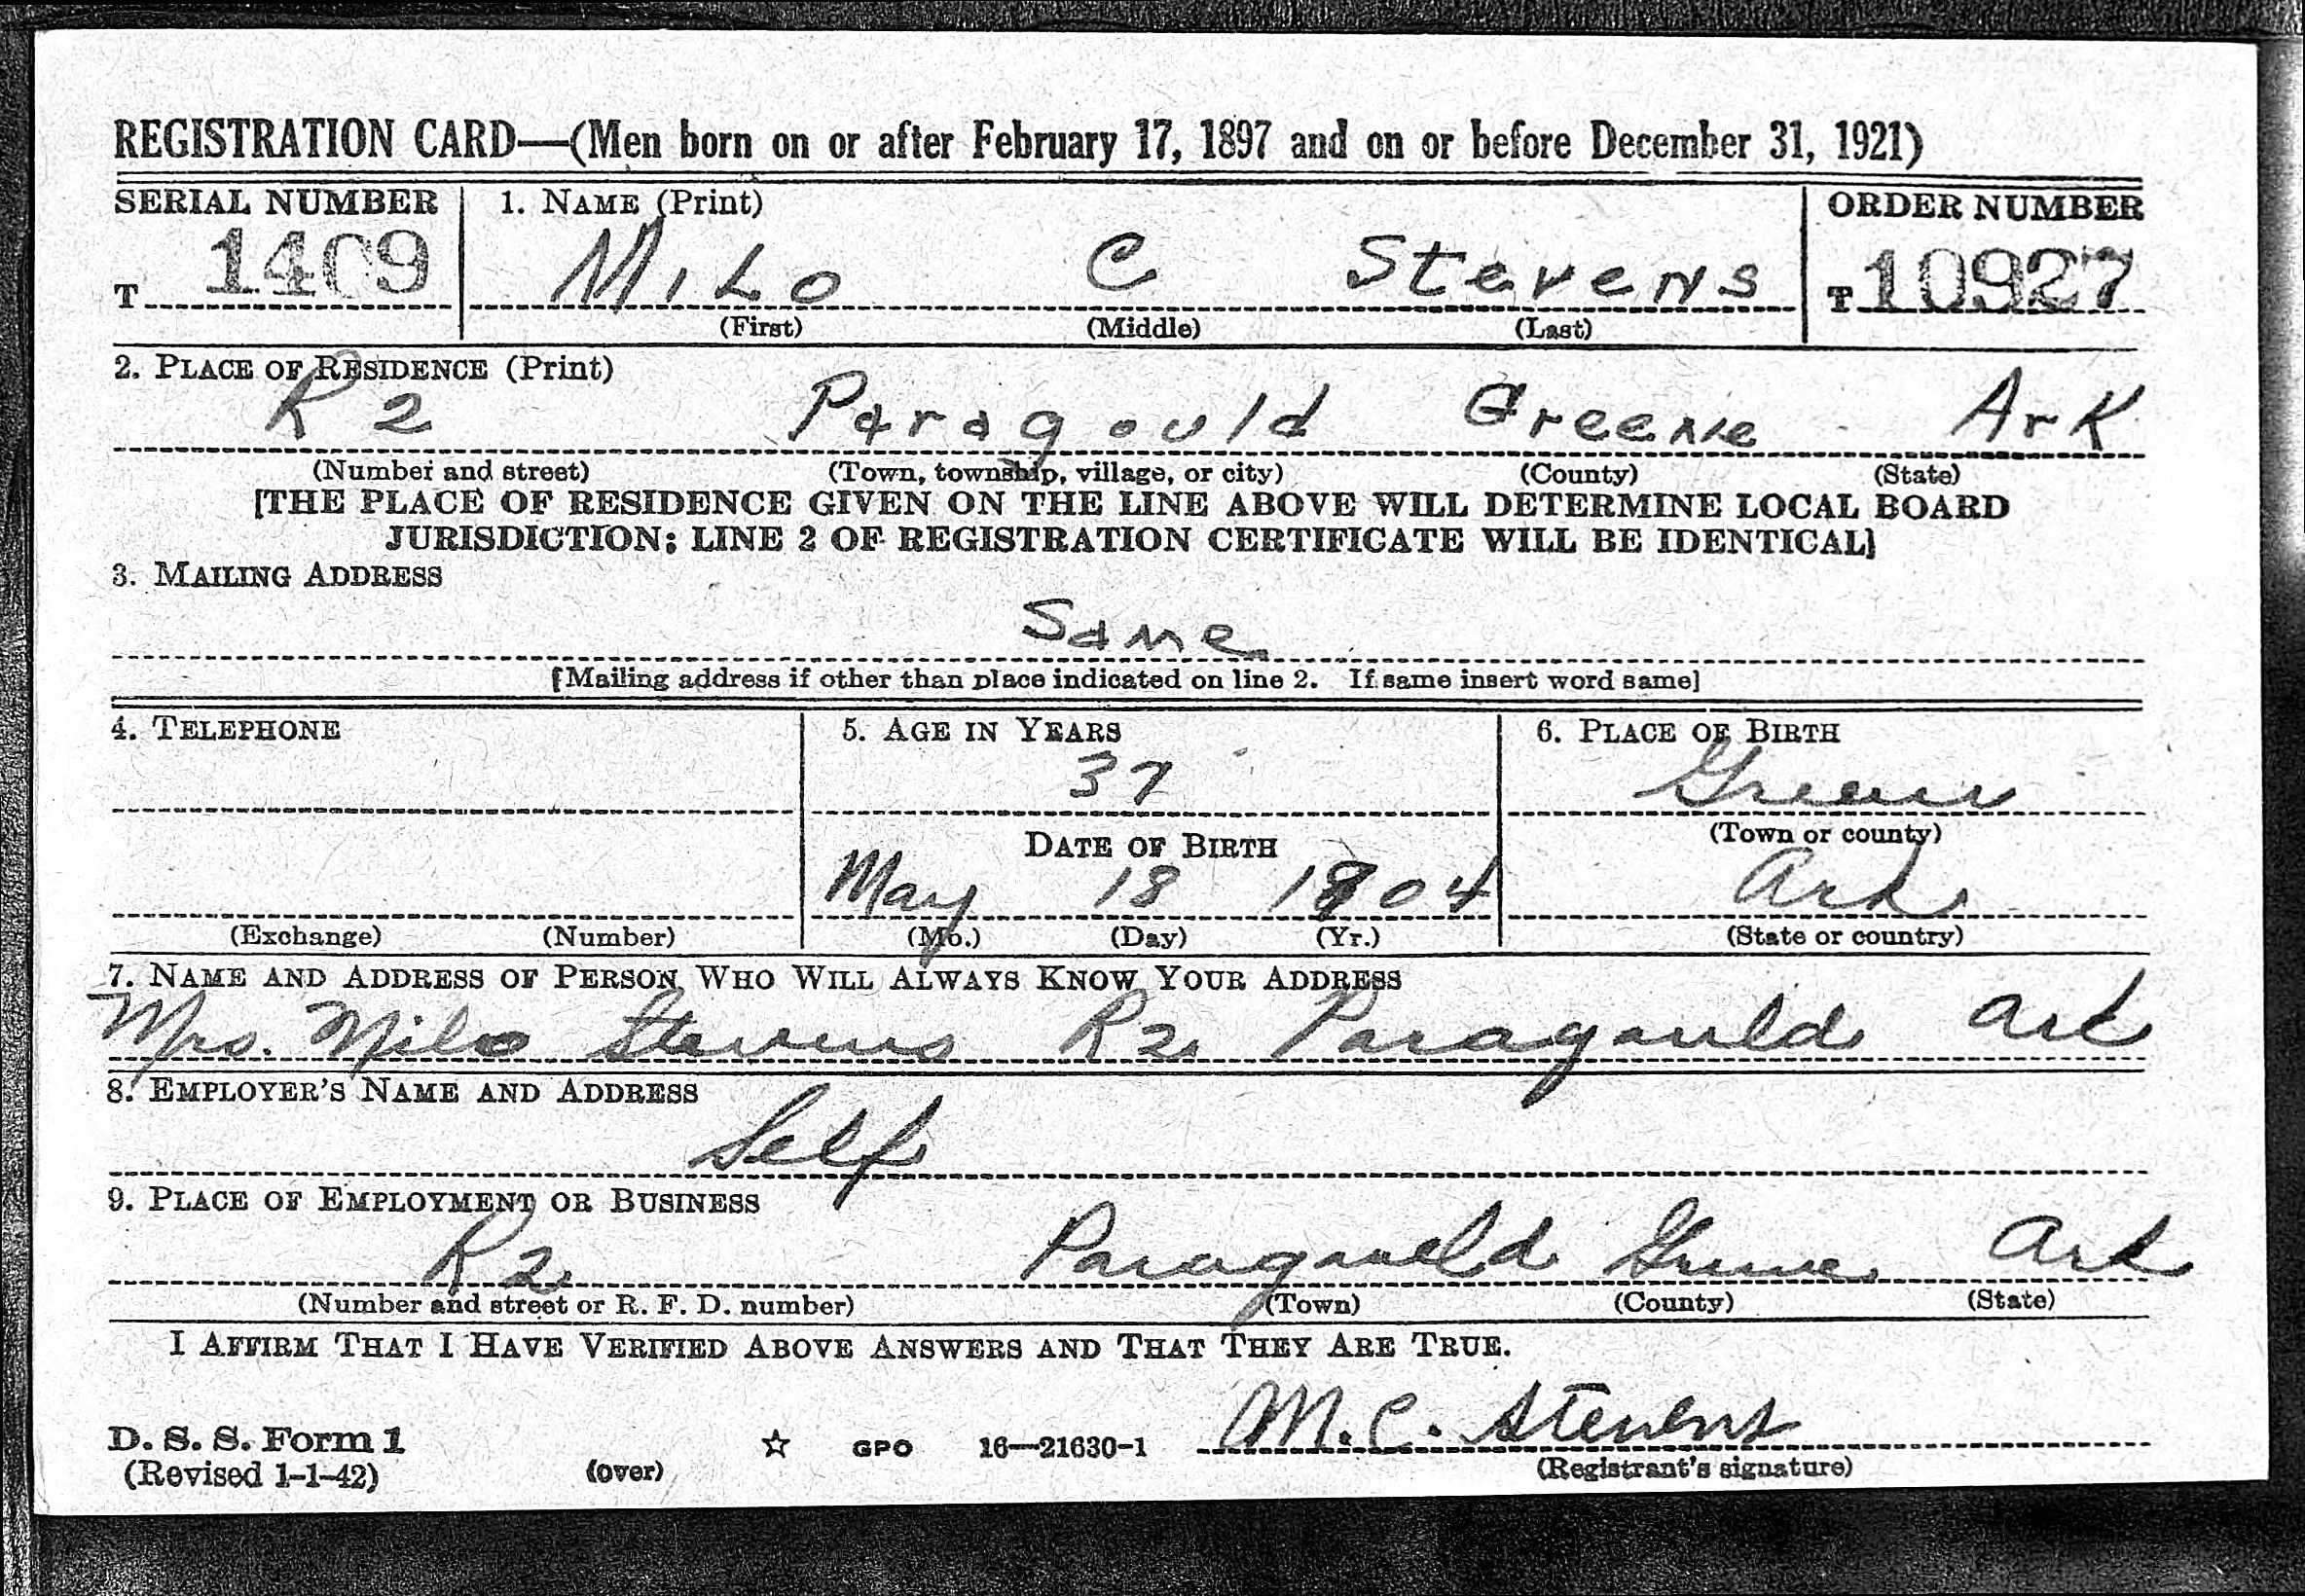 REGISTRATION CARD—(Men born on or after February 17, 1897 and on or before December 31, 1921)
SERIAL NUMBER 1. NAME (Print) ORDER NUMBER
T 1409 Milo C Stevens T 10927
(First) (Middle) (Last)
2. PLACE OF RESIDENCE (Print)
R 2 Paragould Greene Ark
(Number and street) (Town, township, village, or city) (County) (State)
[THE PLACE OF RESIDENCE GIVEN ON THE LINE ABOVE WILL DETERMINE LOCAL BOARD
JURISDICTION; LINE 2 OF REGISTRATION CERTIFICATE WILL BE IDENTICAL]
3. MAILING ADDRESS
Same
[Mailing address if other than place indicated on line 2. If same insert word same]
4. TELEPHONE 5. AGE IN YEARS 6. PLACE OF BIRTH
37 Greene
DATE OF BIRTH (Town or county)
May 18 1904 Ark
(Exchange) (Number) (Mo.) (Day) (Yr.) (State or country)
7. NAME AND ADDRESS OF PERSON WHO WILL ALWAYS KNOW YOUR ADDRESS
Mrs. Milo Stevens R2 Paragould Ark
8. EMPLOYER'S NAME AND ADDRESS
Self
9. PLACE OF EMPLOYMENT OR BUSINESS
R2 Paragould Greene Ark
(Number and street or R. F. D. number) (Town) (County) (State)
I AFFIRM THAT I HAVE VERIFIED ABOVE ANSWERS AND THAT THEY ARE TRUE.
M. C. Stevens
D. S. S. Form 1 ☆ GPO 16—21630-1
(Revised 1-1-42) (over) (Registrant's signature)